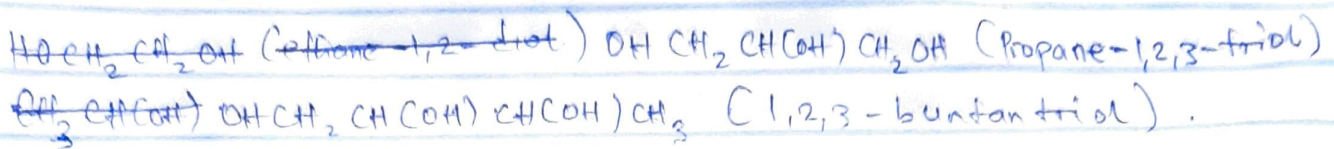 HOCH₂CH₂OH (ethane-1,2-diol) OH CH₂ CH(OH) CH₂OH (Propane-1,2,3-triol)
CH₃ CH(OH) OH CH₂ CH (OH) CH(OH) CH₃ (1,2,3-buntantriol).